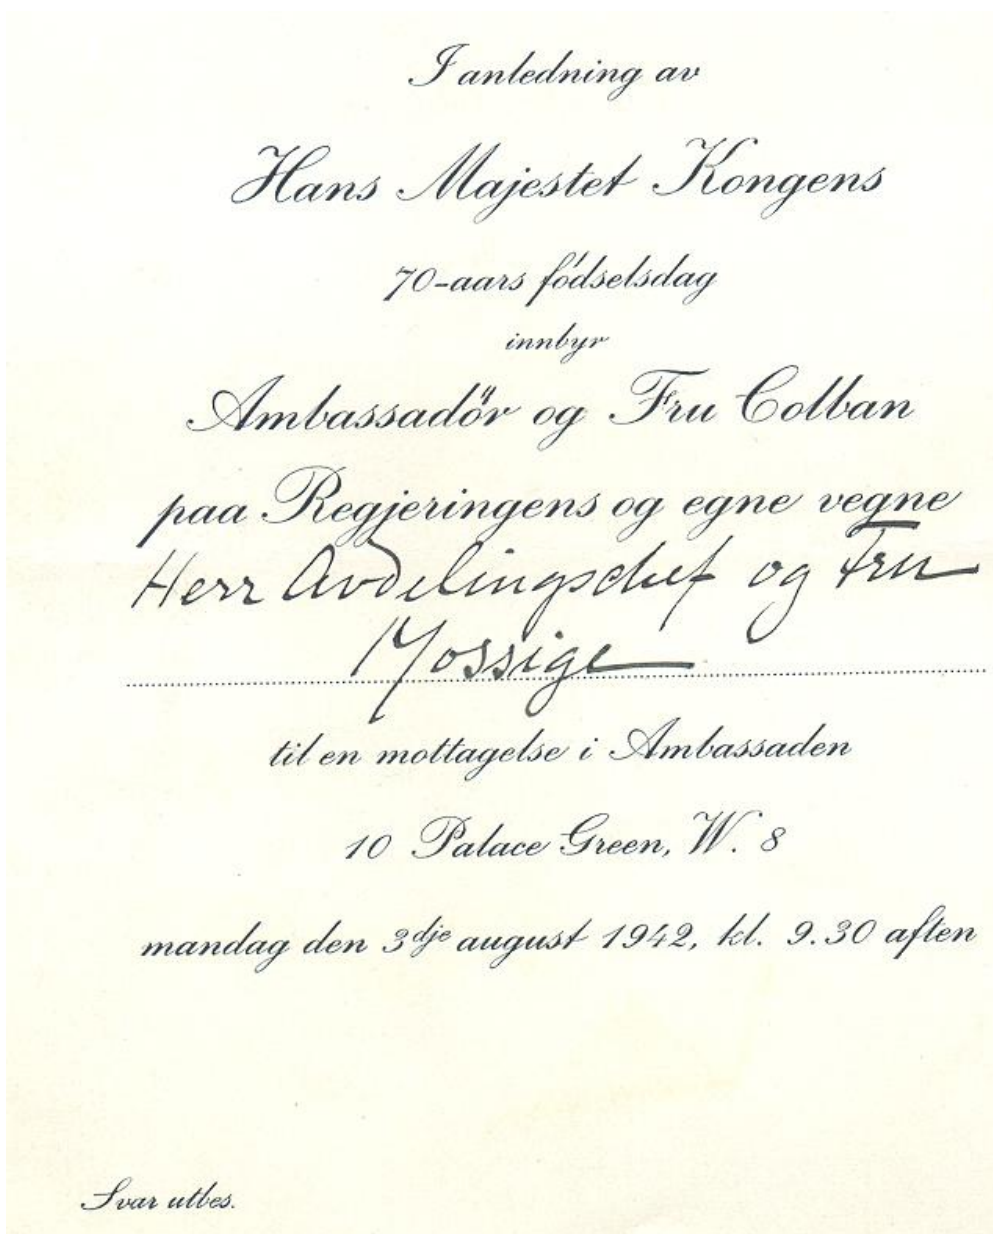 I anledning av
Hans Majestet Kongens
70-aars födselsdag
innbyr
Ambassadör og Fru Colban
paa Regjeringens og egne vegne
Herr Avdelingschef og Fru
Mossige
til en mottagelse i Ambassaden
10 Palace Green, W. 8
mandag den 3dje august 1942, kl. 9.30 aften
Svar utbes.